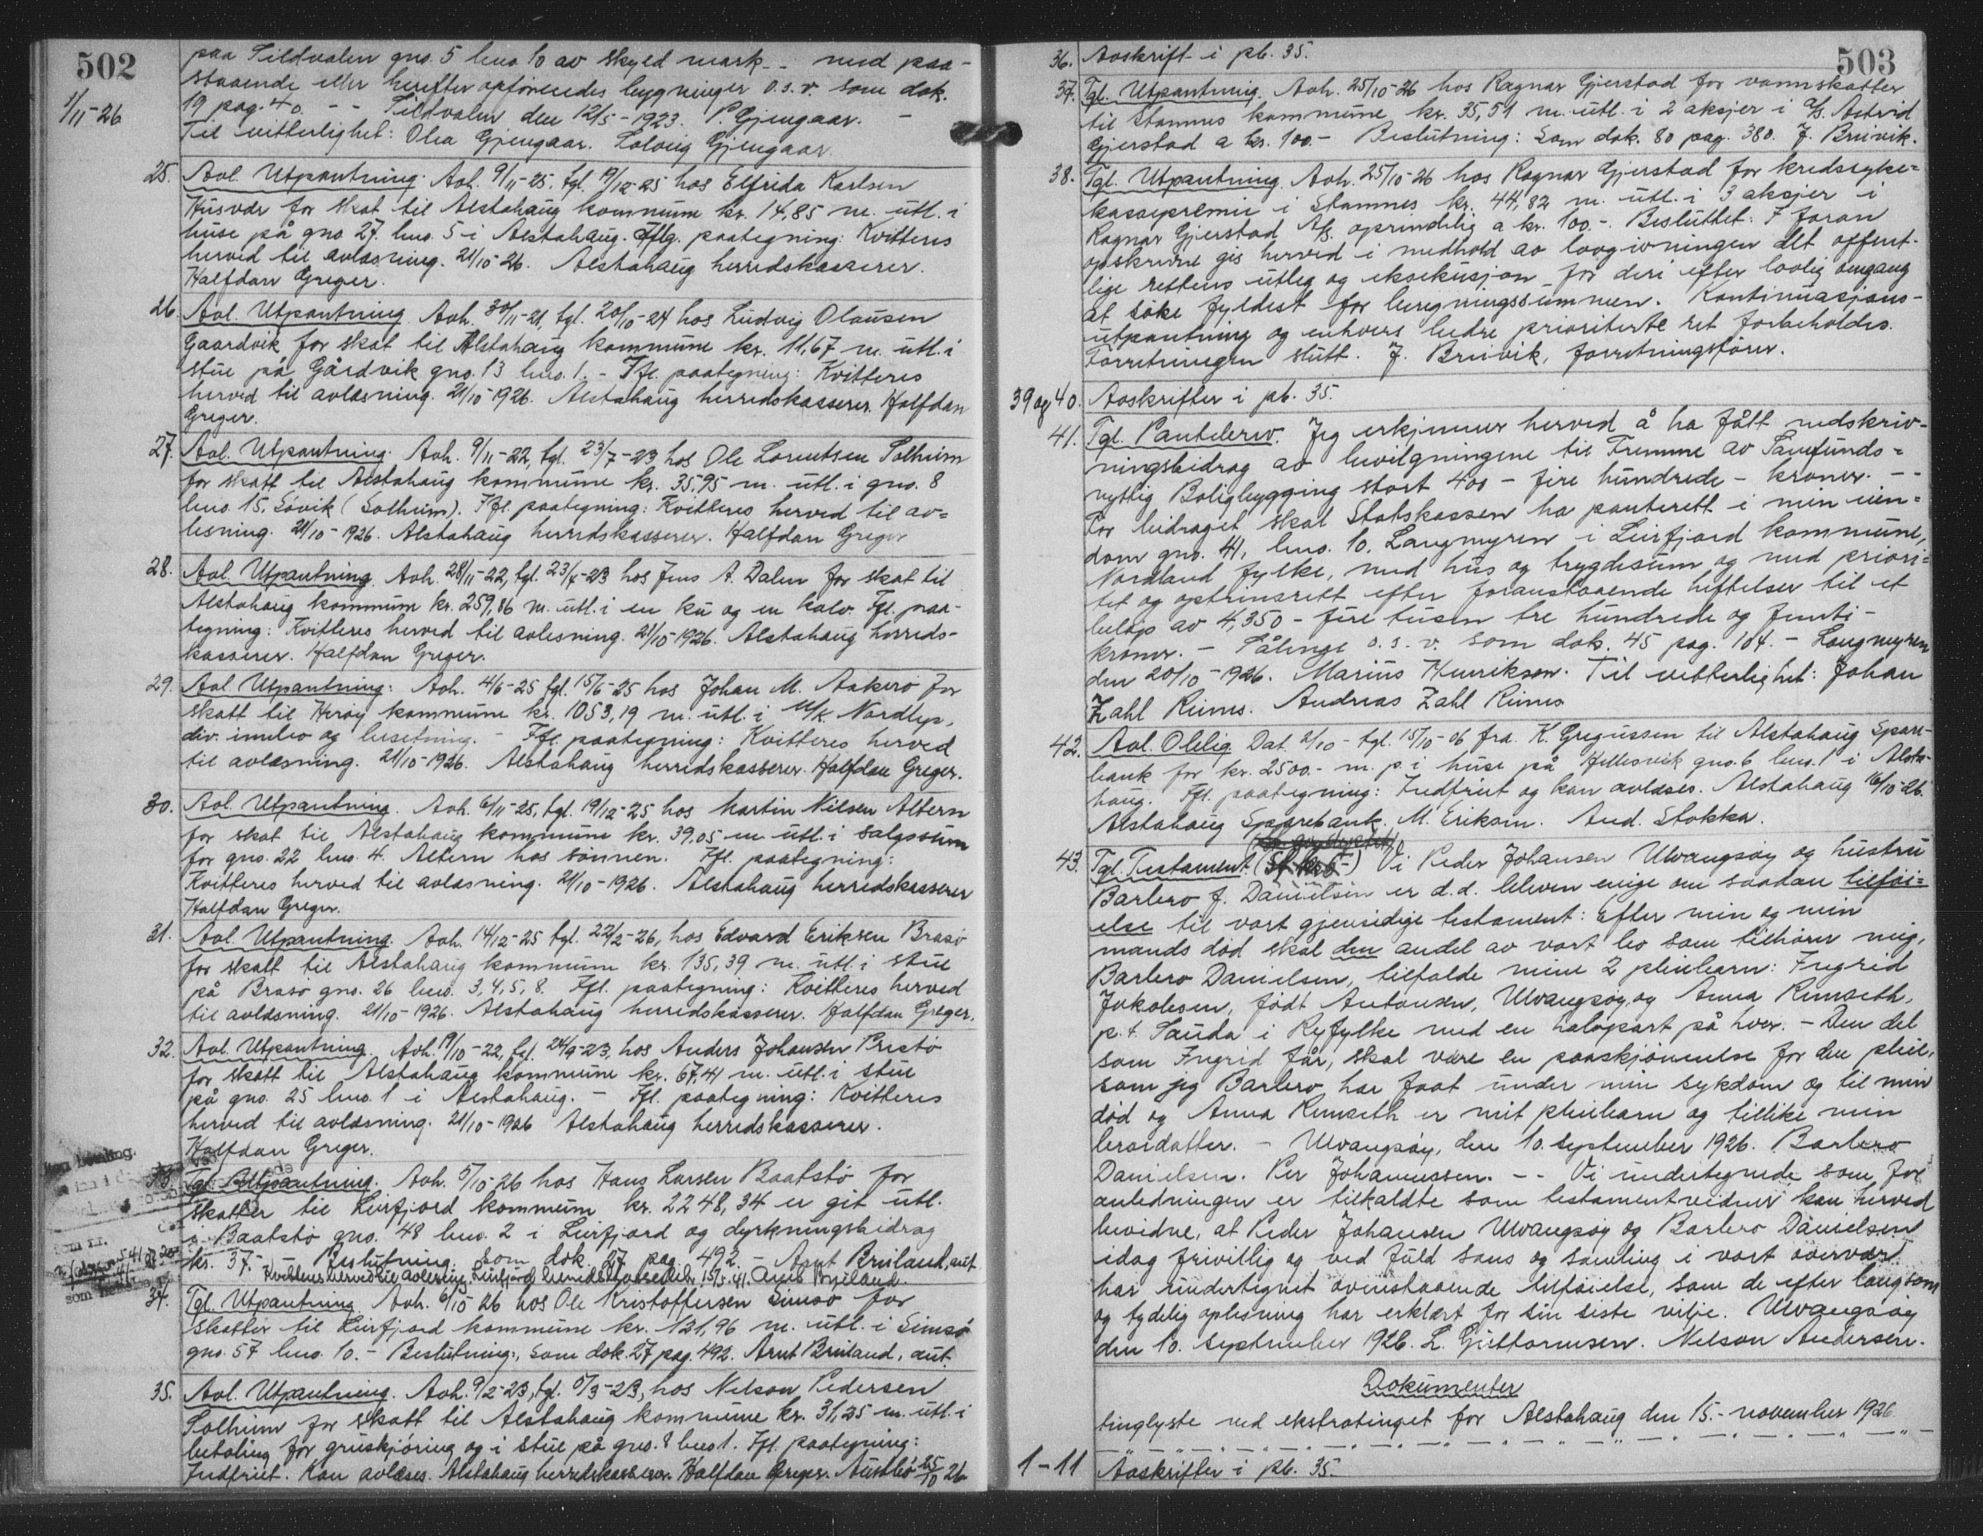 502
1/11-26
paa Tildvalen gno. 5 bno. 10 av skyld mark - - med paa-
staaende eller herefter opförendes bygninger o.s.v. som dok.
19 pag. 40. - - Tildvalen den 12/5-1923. P. Gjengaar. -
Til vitterlighet: Olea Gjengaar. Lovig Gjengaar.
25. Avl. Utpantning. Avh. 9/11-25, tgl. 19/12-25 hos Elfrida Karlsen
Husvær for skat til Alstahaug kommune kr. 14,85 m. utl. i
huse på gno. 27 bno. 5 i Alstahaug. Iflg. paategning: Kvitteres
herved til avlæsning. 21/10-26. Alstahaug herredskasserer.
Halfdan Greger.
26. Avl. Utpantning. Avh. 30/11-21, tgl. 20/10-24 hos Ludvig Olausen
Gaardvik for skat til Alstahaug kommune kr. 11,67 m. utl. i
stue på Gårdvik gno. 13 bno. 1. - Ifl. paategning: Kvitteres
herved til avlæsning. 21/10-1926. Alstahaug herredskasserer. Halfdan
Greger.
27. Avl. Utpantning. Avh. 9/11-22, tgl. 23/7-23 hos Ole Lorentsen Solheim
for skatt til Alstahaug kommune kr. 35,95 m. utl. i gno. 8
bno. 15. Søvik (Solheim). Ifl. paategning: Kvitteres herved til av=
lesning. 21/10-1926. Alstahaug herredskasserer. Halfdan Greger
28. Avl. Utpantning. Avh. 28/11-22, tgl. 23/7-23 hos Jens A. Dalen for skat til
Alstahaug kommune kr. 259,86 m. utl. i en ku og en kalv. Ifl. paa-
tegning: Kvitteres herved til avlesning. 21/10-1926. Alstahaug herreds-
kasserer. Halfdan Greger.
29. Avl. Utpantning: Avh. 4/6-25 tgl. 15/6-25 hos Johan M. Aakerø for
skatt til Herøy kommune kr. 1053,19 m. utl. i M/K. Nordlys,
div. innbo og besetning. - Ifl. paategning: Kvitteres herved
til avlæsning. 21/10-1926. Alstahaug herredskasserer. Halfdan Greger.
30. Avl. Utpantning. Avh. 6/11-25, tgl. 19/12-25 hos Martin Nilsen Altern
for skat til Alstahaug kommune kr. 39,05 m. utl. i salgssum
for gno. 22 bno. 4. Altern hos sønnen. Ifl. paategning:
Kvitteres herved til avlæsning. 21/10-1926. Alstahaug herredskasserer
Halfdan Greger.
31. Avl. Utpantning. Avh. 14/12-25 tgl. 22/2-26, hos Edvard Eriksen Brasø
for skatt til Alstahaug kommune kr. 135,39 m. utl. i stue
på Brasø gno. 26 bno. 3, 4, 5, 8. Ifl. paategning: Kvitteres herved
til avlæsning. 21/10-1926. Alstahaug herredskasserer. Halfdan Greger.
32. Avl. Utpantning. Avh. 19/10-22, tgl. 24/9-23, hos Anders Johansen Prestø
for skatt til Alstahaug kommune kr. 67,41 m. utl. i stue
på gno. 25 bno. 1 i Alstahaug. - Ifl. paategning: Kvitteres
herved til avlæsning. 21/10-1926 Alstahaug herredskasserer.
Halfdan Greger.
33. Tgl. Utpantning. Avh. 5/10-26 hos Hans Larsen Baatstø for
skatter til Leirfjord kommune kr. 2248,34 er git utl.
i Baatstø gno. 48 bno. 2 i Leirfjord og dyrkningsbidrag
kr. 37.- - Beslutning som dok. 27 pag. 492. - Arnt Bruland, aut.
Kvitteres herved til avlesning. Leirfjord herredskasserer 15/5-41. Arnt Bruland.
34. Tgl. Utpantning. Avh. 6/10 26 hos Ole Kristoffersen Simsø for
skatter til Leirfjord kommune kr. 131,96 m. utl. i Simsø
gno. 57 bno. 10. - Beslutning: som dok. 27 pag. 492. Arnt Bruland, aut.
35. Avl. Utpantning. Avh. 9/2-23, tgl. 5/3-23, hos Nelson Pedersen
Solheim for skatt til Alstahaug kommune kr. 31,25 m. utl. i
betaling for gruskjøring og i stue på gno. 8 bno 1. Ifl. paategning:
Indfriet. Kan avlæses. Alstahaug herredskasserer. Halfdan Greger. Austbø 25/10 26
503
36. Avskrift i pb. 35.
37. Tgl. Utpantning. Avh. 25/10-26 hos Ragnar Gjerstad for vannskatter
til Stamnes kommune kr. 35,51 m. utl. i 2 aksjer i A/S. Astrid
Gjerstad a kr. 100.- Beslutning: Som dok. 80 pag. 380. J. Bruvik.
38. Tgl. Utpantning. Avh. 25/10-26 hos Ragnar Gjerstad for kredssyke=
kassepremie i Stamnes kr. 44,82 m. utl. i 3 aksjer i
Ragnar Gjerstad A/S. oprindelig a kr. 100.-. Besluttet: I foran
opskrevne gis herved i medhold av lovgivningen det offent-
lige rettens utleg og eksekusjon for deri efter lovlig omgang
at søke fyldest for beregningssummen. Kontinuasjons-
utpantning og enhvers bedre prioriterte ret forbeholdes.
Forretningen slutt. J. Bruvik, forretningsfører.
39 og 40. Avskrifter i pb. 35.
41. Tgl. Pantebrev. Jeg erkjenner herved å ha fått nedskriv-
ningsbidrag av bevilgningene til Fremme av Samfunds=
nyttig Boligbygging stort 400 - fire hundrede - kroner. - -
For bidraget skal Statskassen ha panterett i min eien=
dom gno. 41, bno. 10. Langmyren i Leirfjord kommune,
Nordland fylke, med hus og trygdesum og med priori=
tet og optrinsrett efter foranstaaende heftelser til et
beløp av 4,350 - fire tusen tre hundrede og femti -
kroner. - Sålenge o.s.v. som dok. 45 pag. 104. - Langmyren
den 20/10-1926. Marius Henriksen. Til vitterlighet: Johan
Zahl Rines. Andreas Zahl Rines
42. Avl. Oblig. Dat. 2/10 - tgl. 15/10-06 fra K. Gregussen til Alstahaug Spare-
bank for kr. 2500.- m. p. i huse på Hellesvik gno. 6 bno. 1 i Alsta-
haug. Ifl. paategning: Indfriet og kan avlæses. Alstahaug 16/10-26.
Alstahaug Sparebank. M. Eriksen. And. Stokka.
43. Tgl. Testament. Vi Peder Johansen Ulvangsøy og hustru
Barbro J. Danielsen er d.d. bleven enige om saadan tilføi=
else til vort gjensidige testament: Efter min og min
mands død skal den andel av vort bo som tilhører mig,
Barbro Danielsen, tilfalde mine 2 pleiebarn: Ingrid
Jakobsen, født Antonsen, Ulvangsøy, og Anna Remseth,
p.t. Sauda i Ryfylke med en halvpart på hver. - Den del
som Ingrid får, skal være en paaskjønnelse for den pleie,
som jeg Barbro, har faat under min sykdom og til min
død og Anna Remseth er mit pleiebarn og tillike min
brordatter. - Ulvangsøy, den 10. september 1926. Barbro
Danielsen. Per Johannessen. - - Vi undertegnede som for
anledningen er tilkaldte som testamentvidner kan herved
bevidne, at Peder Johansen Ulvangsøy og Barbro Danielsen
idag frivillig og ved fuld sans og samling i vort overvær
har undertegnet ovenstaaende tilføielse, som de efter langsom
og tydelig oplesning har erklært for sin siste vilje. Ulvangsøy
den 10. september 1926. L. Guttormsen. Nelson Andersen.
Dokumenter
tinglyste ved ekstratinget for Alstahaug den 15. november 1926
1-11 Avskrifter i pb. 35.